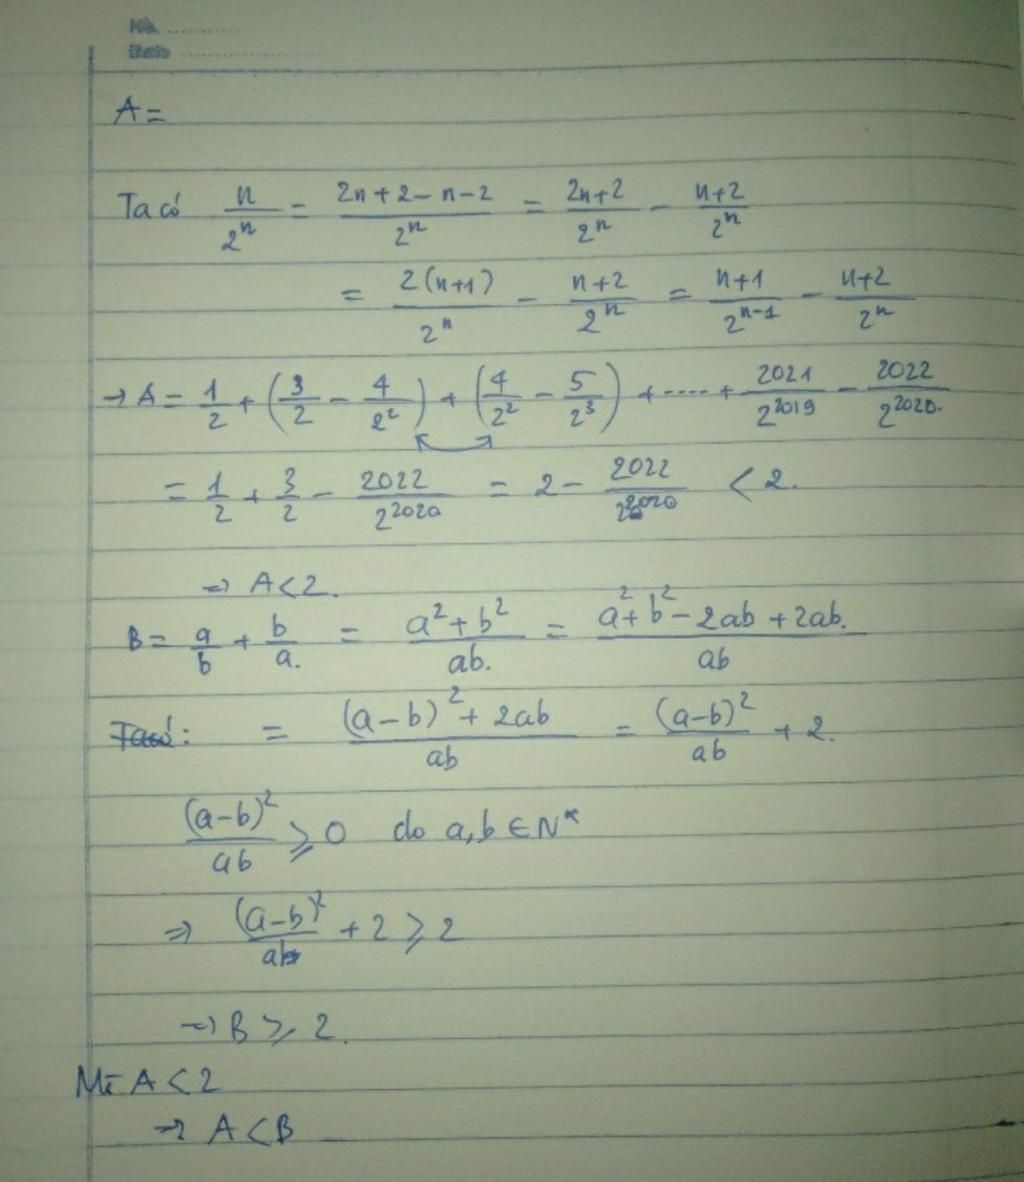 No. ...........
Date ..................
A =
Ta có n/2^n = (2n + 2 - n - 2)/2^n = (2n+2)/2^n - (n+2)/2^n
= 2(n+1)/2^n - (n+2)/2^n = (n+1)/2^(n-1) - (n+2)/2^n
→ A = 1/2 + (3/2 - 4/2^2) + (4/2^2 - 5/2^3) + ..... + 2021/2^2019 - 2022/2^2020.
= 1/2 + 3/2 - 2022/2^2020 = 2 - 2022/2^2020 < 2.
⇒ A < 2.
B = a/b + b/a. = (a^2 + b^2)/ab. = (a^2 + b^2 - 2ab + 2ab.)/ab
Ta có: = ((a-b)^2 + 2ab)/ab = (a-b)^2/ab + 2.
(a-b)^2/ab ⩾ 0 do a,b ∈ N*
⇒ (a-b)^2/ab + 2 ⩾ 2
⇒ B ⩾ 2.
Mà A < 2
→ A < B